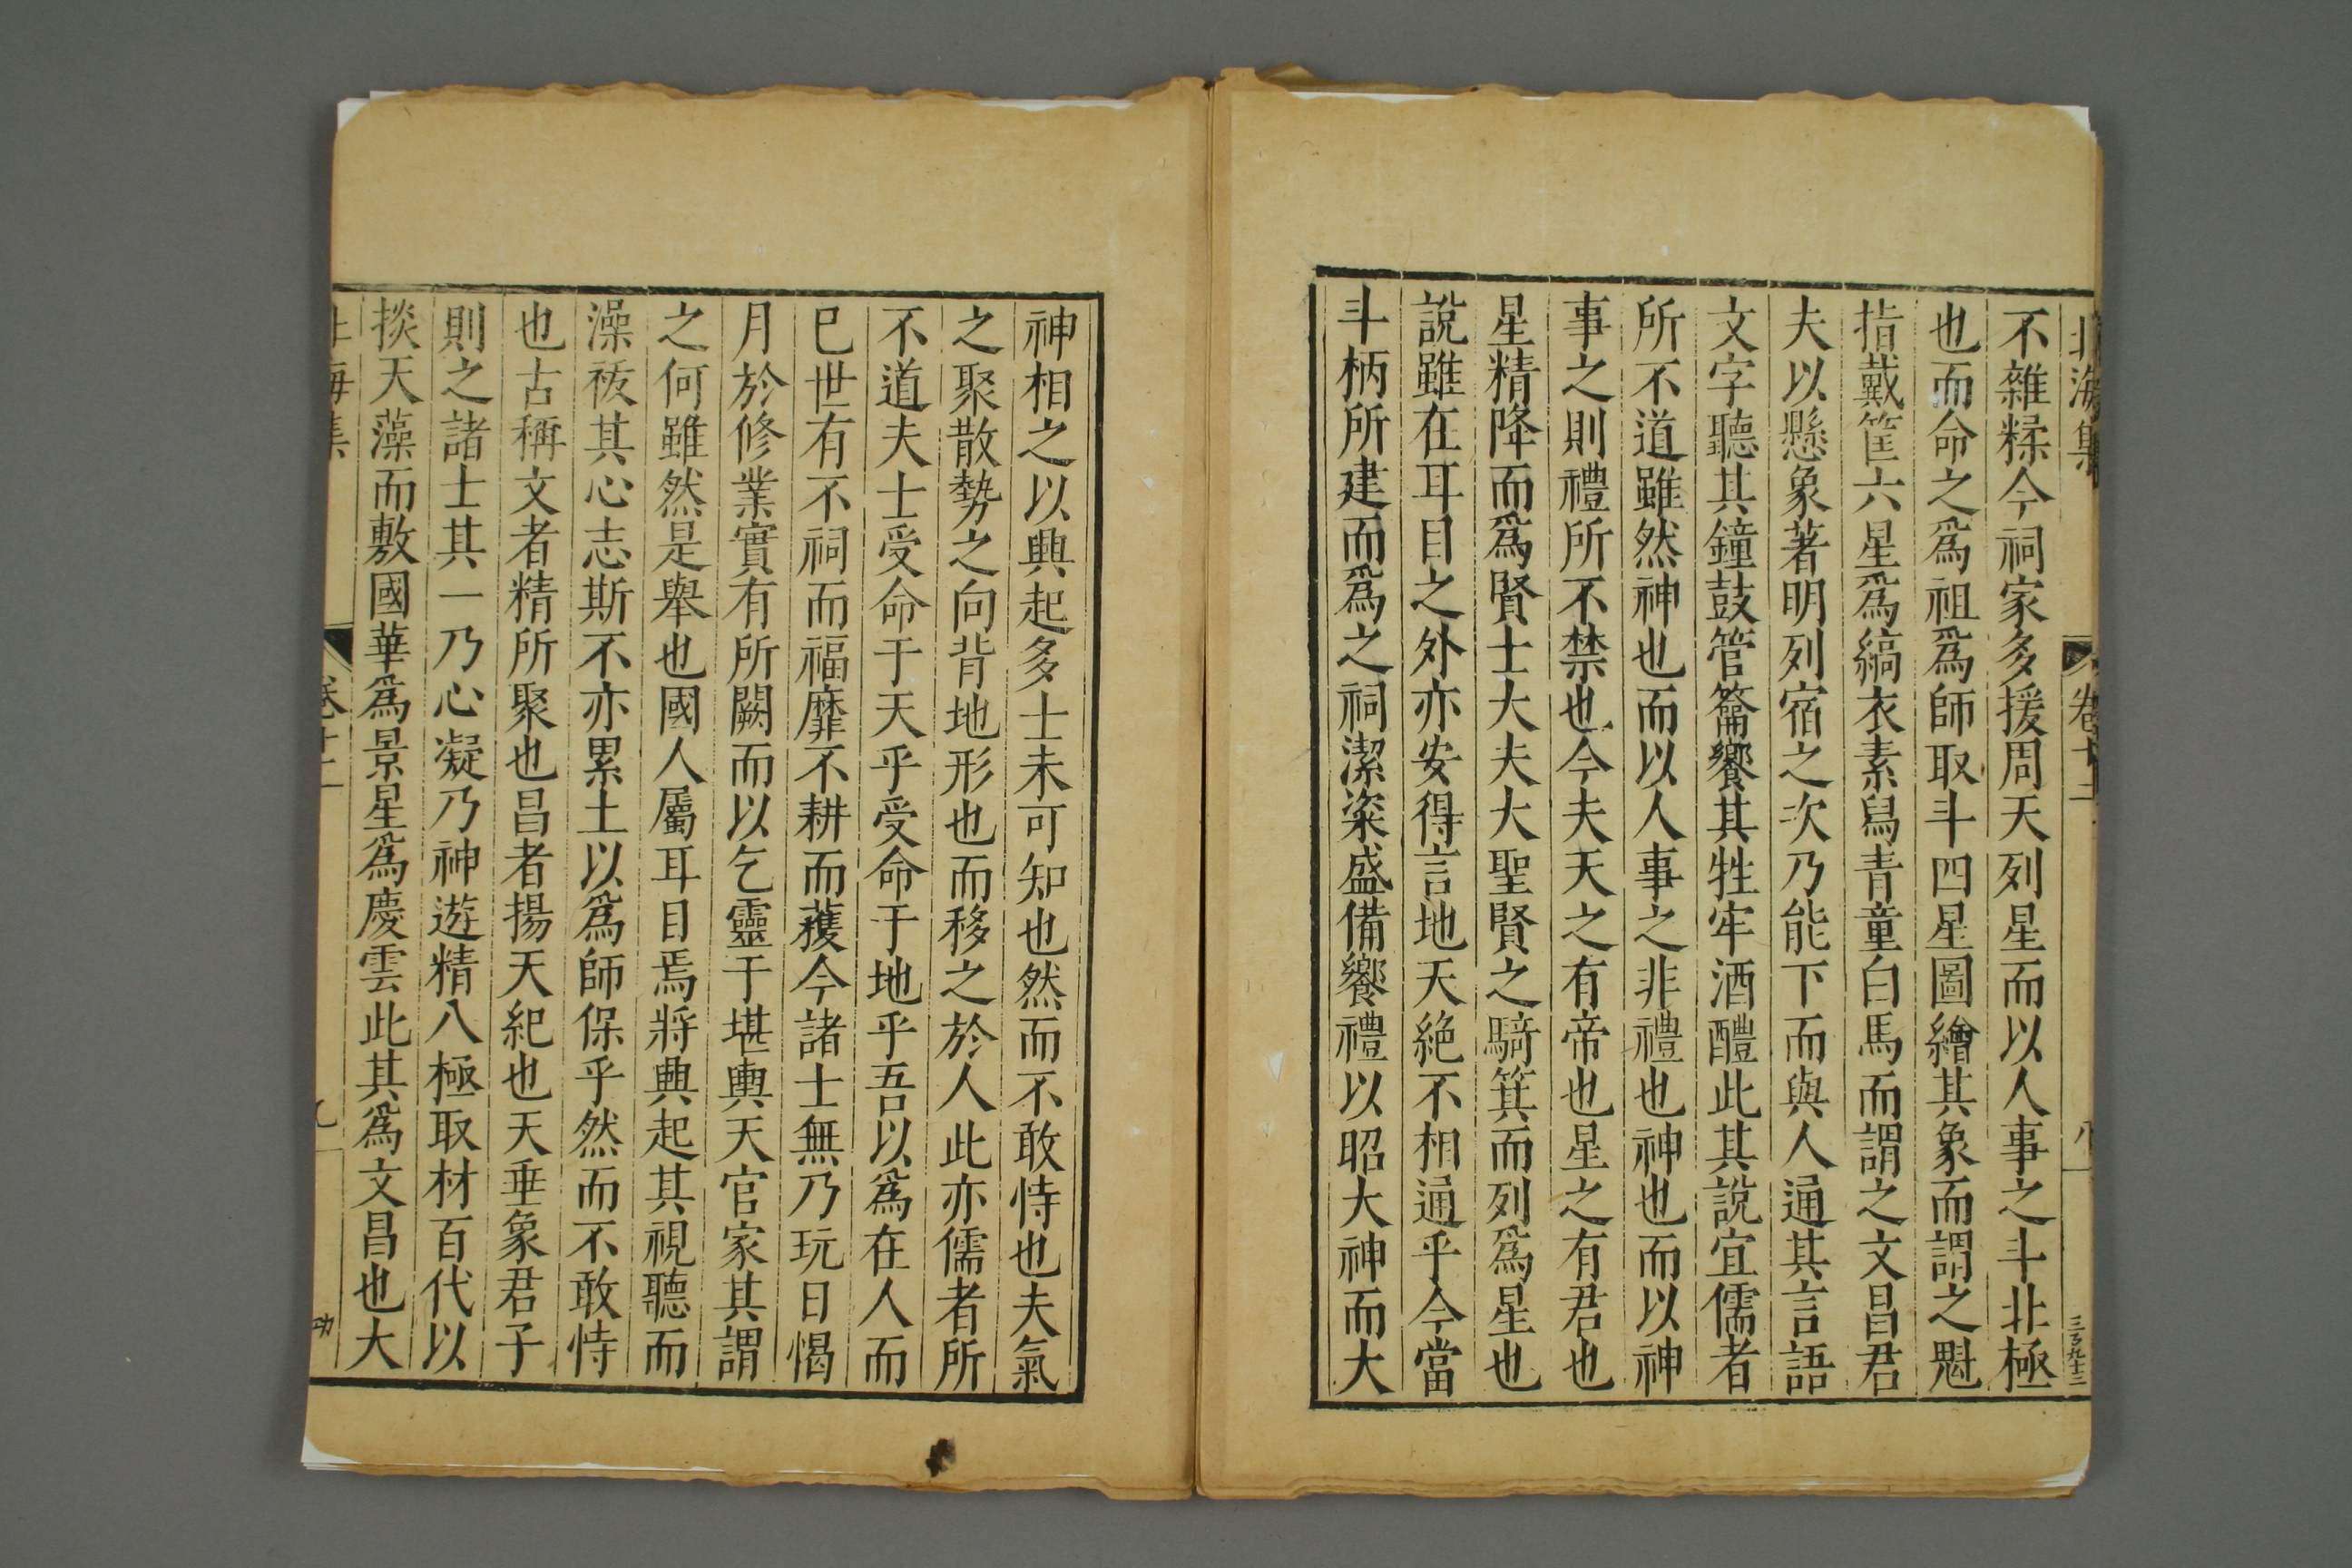 北海集 卷十二 八 三百九十三
不雜糅今祠家多援周天列星而以人事之斗北極
也而命之爲祖爲師取斗四星圖繪其象而謂之魁
指戴筐六星爲縞衣素舄青童白馬而謂之文昌君
夫以懸象著明列宿之次乃能下而與人通其言語
文字聽其鐘鼓管籥饗其牲牢酒醴此其說宜儒者
所不道雖然神也而以人事之非禮也神也而以神
事之則禮所不禁也今夫天之有帝也星之有君也
星精降而爲賢士大夫大聖賢之騎箕而列爲星也
說雖在耳目之外亦安得言地天絕不相通乎今當
斗柄所建而爲之祠潔粢盛備饗禮以昭大神而大
神相之以興起多士未可知也然而不敢恃也夫氣
之聚散勢之向背地形也而移之於人此亦儒者所
不道夫士受命于天乎受命于地乎吾以爲在人而
已世有不祠而福靡不耕而穫今諸士無乃玩日愒
月於修業實有所闕而以乞靈于堪輿天官家其謂
之何雖然是舉也國人屬耳目焉將興起其視聽而
澡祓其心志斯不亦累土以爲師保乎然而不敢恃
也古稱文者精所聚也昌者揚天紀也天垂象君子
則之諸士其一乃心凝乃神遊精八極取材百代以
掞天藻而敷國華爲景星爲慶雲此其爲文昌也大
北海集 卷十二